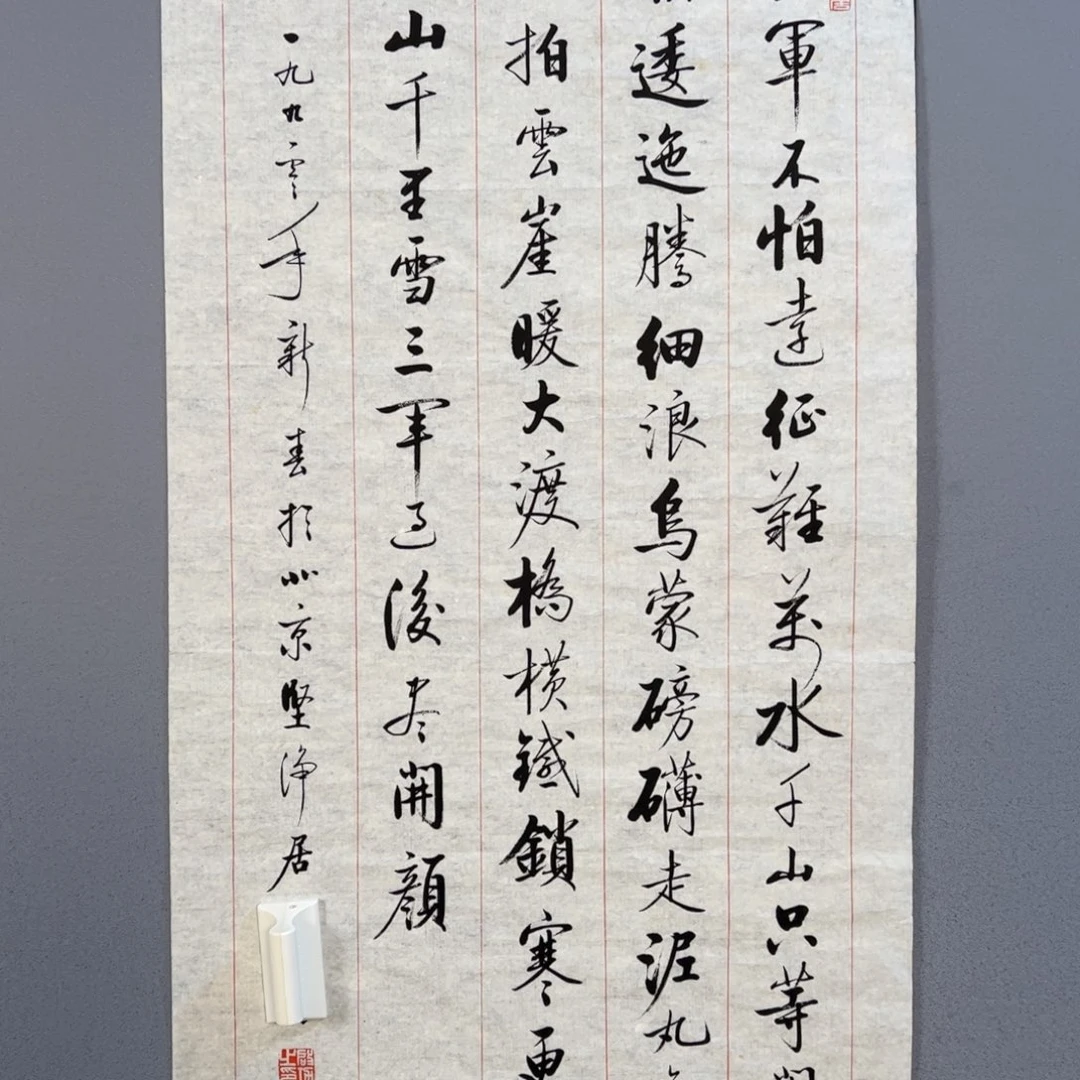 軍不怕遠征難萬水千山只等
逶迤騰細浪烏蒙磅礴走泥丸
拍雲崖暖大渡橋橫鐵鎖寒更
山千里雪三軍過後盡開顏
一九九零年新春於北京堅淨居